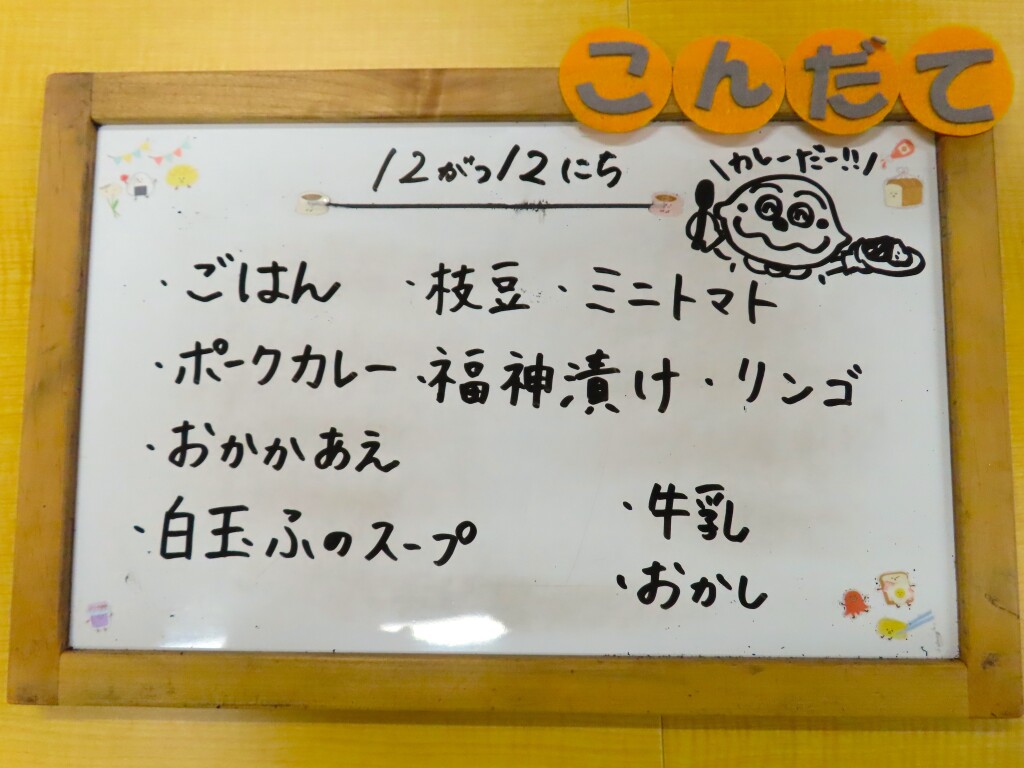 こんだて
12がつ12にち
\カレーだー!!/
・ごはん ・枝豆 ・ミニトマト
・ポークカレー ・福神漬け ・リンゴ
・おかかあえ
・白玉ふのスープ
・牛乳
・おかし